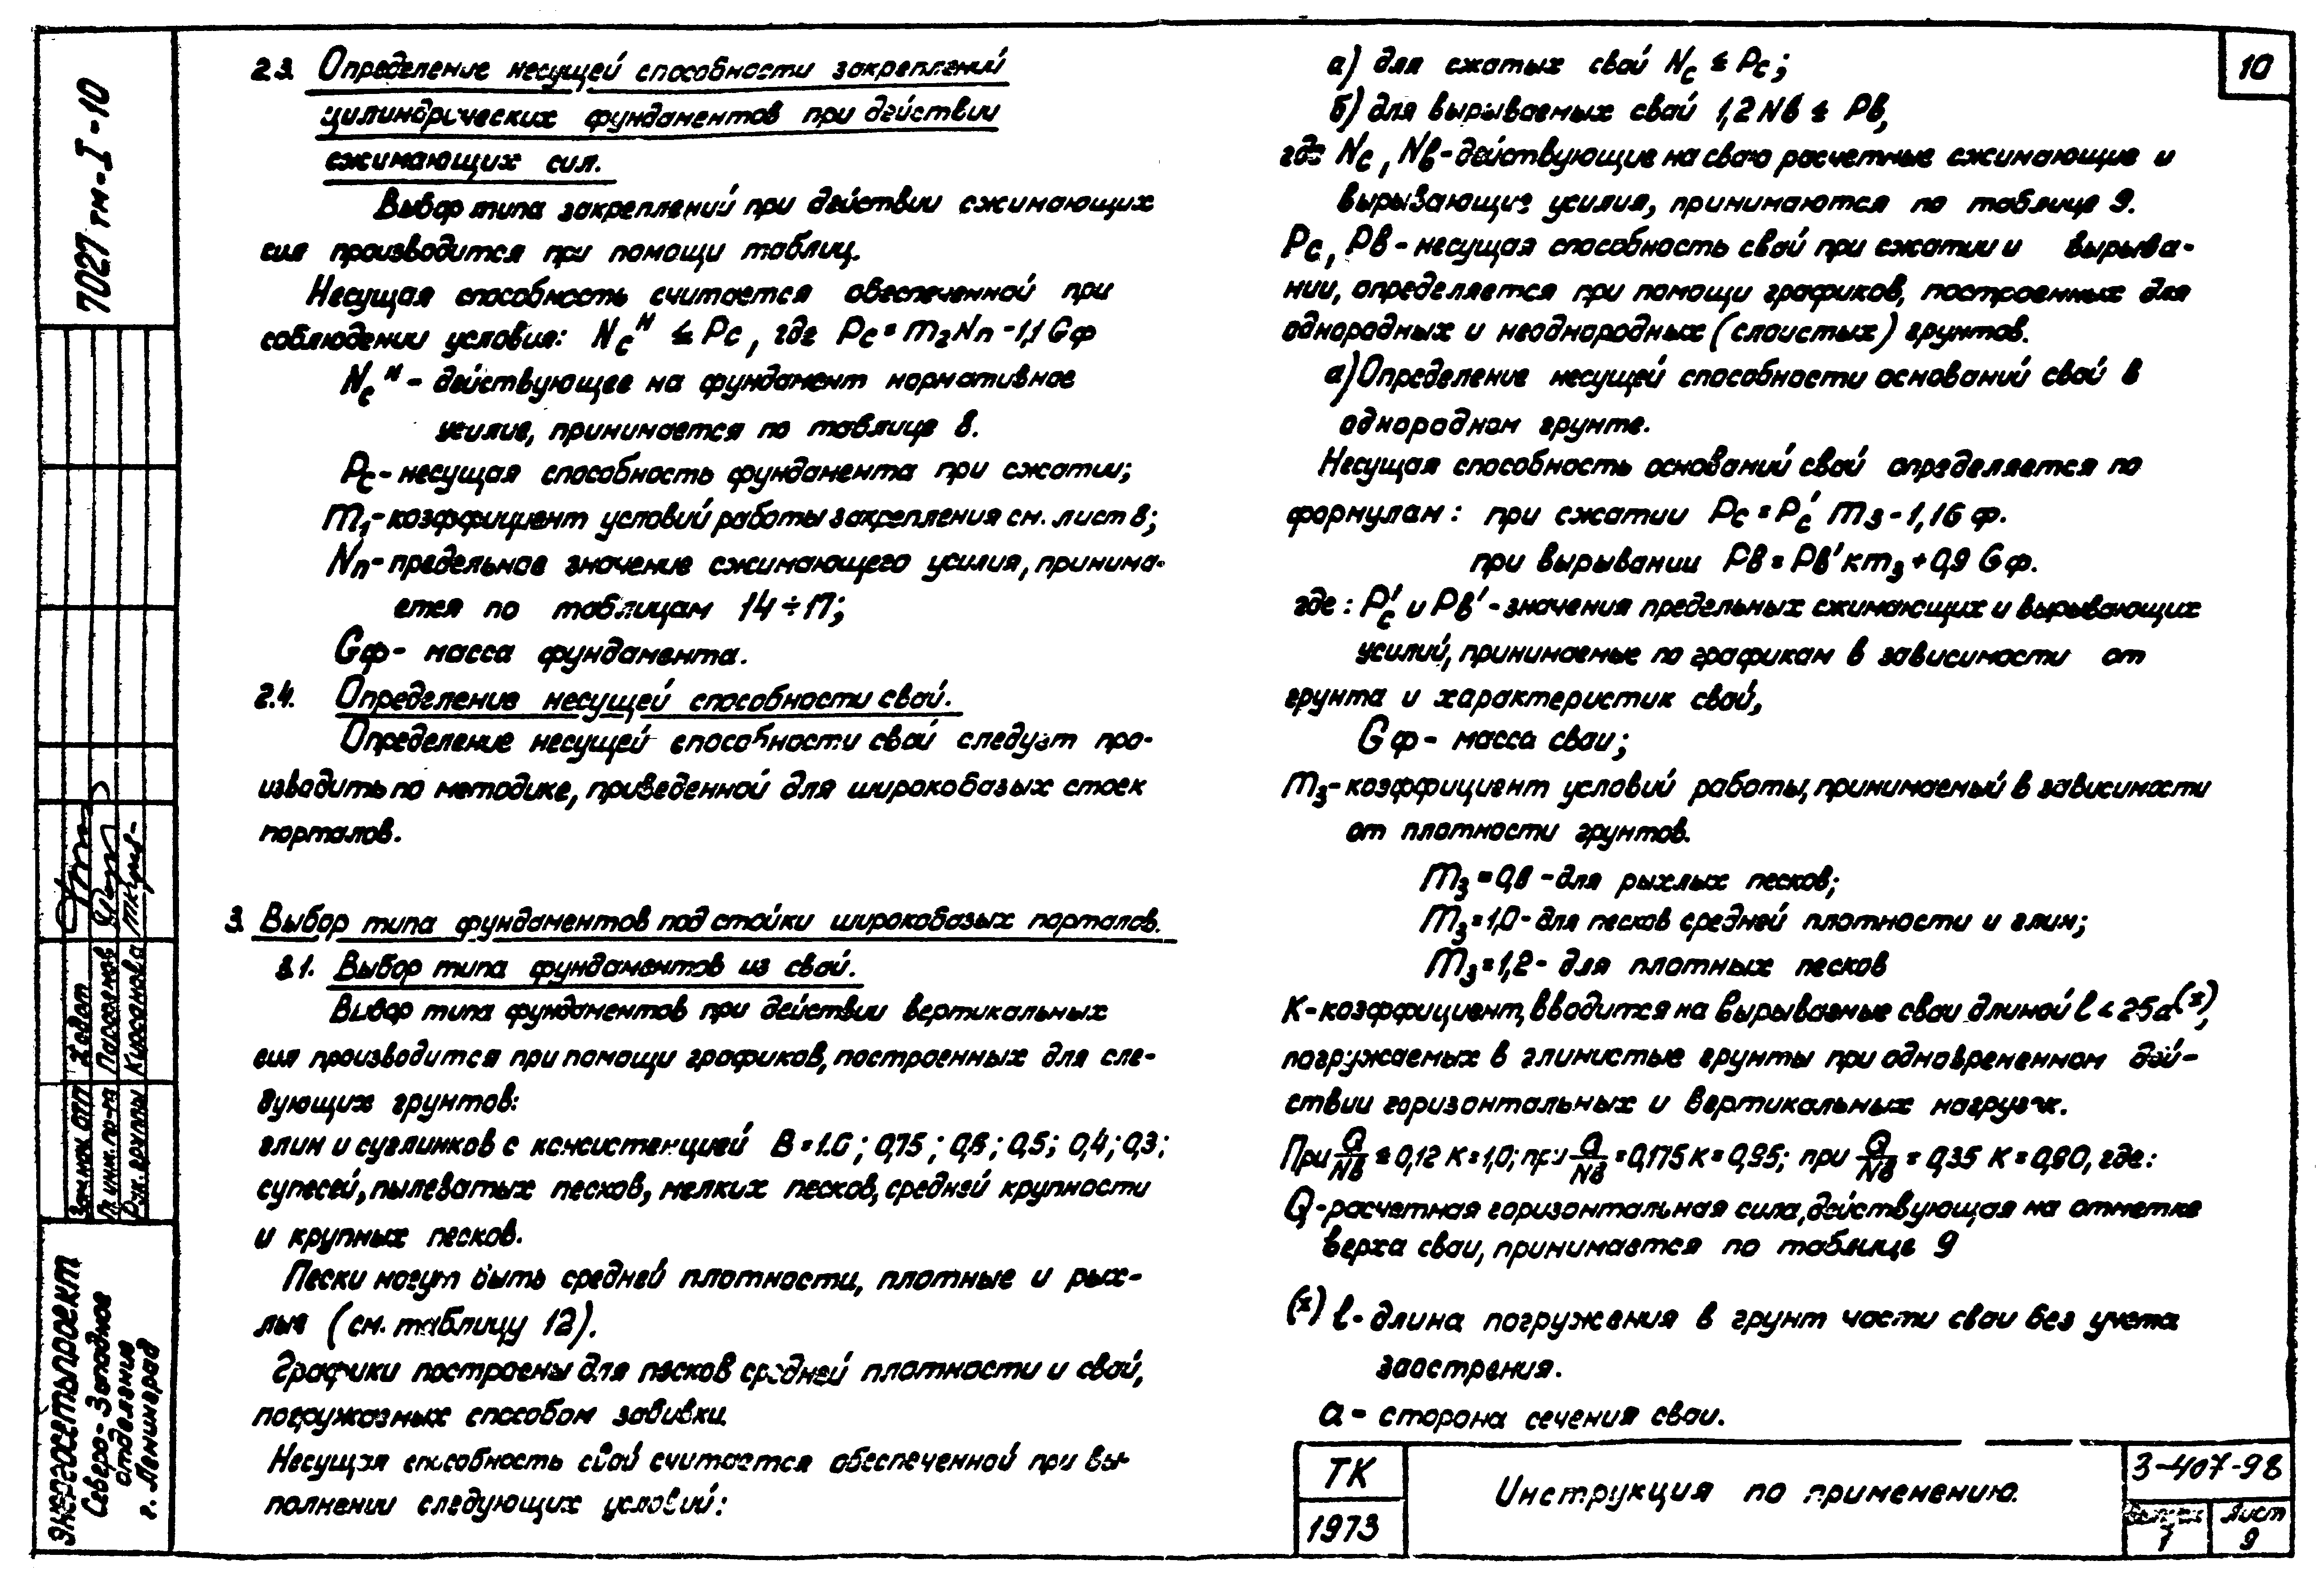 10
7027тм-I-10
2.3. Определение несущей способности закреплений
цилиндрических фундаментов при действии
сжимающих сил.
Выбор типа закреплений при действии сжимающих
сил производится при помощи таблиц.
Несущая способность считается обеспеченной при
соблюдении условия: Nсᴺ ≤ Рс, где Рс = m₂Nп - 1,1 Gф
Nсᴺ - действующее на фундамент нормативное
усилие, принимается по таблице 8.
Рс - несущая способность фундамента при сжатии;
m₁ - коэффициент условий работы закрепления см. лист 8;
Nп - предельное значение сжимающего усилия, принима-
ется по таблицам 14÷17;
Gф - масса фундамента.
2.4. Определение несущей способности свай.
Определение несущей способности свай следует про-
изводить по методике, приведенной для широкобазых стоек
порталов.
3. Выбор типа фундаментов под стойки широкобазых порталов.
3.1. Выбор типа фундаментов из свай.
Выбор типа фундаментов при действии вертикальных
сил производится при помощи графиков, построенных для сле-
дующих грунтов:
глин и суглинков с консистенцией В = 1.0; 0,75; 0,6; 0,5; 0,4; 0,3;
супесей, пылеватых песков, мелких песков, средней крупности
и крупных песков.
Пески могут быть средней плотности, плотные и рых-
лые (см. таблицу 12).
Графики построены для песков средней плотности и свай,
погружаемых способом забивки.
Несущая способность свай считается обеспеченной при вы-
полнении следующих условий:
а) для сжатых свай Nс ≤ Рс;
б) для вырываемых свай 1,2 Nв ≤ Рв,
где Nс, Nв - действующие на сваю расчетные сжимающие и
вырывающие усилия, принимаются по таблице 9.
Рс, Рв - несущая способность свай при сжатии и вырыва-
нии, определяется при помощи графиков, построенных для
однородных и неоднородных (слоистых) грунтов.
а) Определение несущей способности оснований свай в
однородном грунте.
Несущая способность оснований свай определяется по
формулам: при сжатии Рс = Рс' m₃ - 1,1Gф.
при вырывании Рв = Рв' кm₃ + 0,9 Gф.
где: Рс' и Рв' - значения предельных сжимающих и вырывающих
усилий, принимаемые по графикам в зависимости от
грунта и характеристик свай,
Gф - масса сваи;
m₃ - коэффициент условий работы, принимаемый в зависимости
от плотности грунтов.
m₃ = 0,8 - для рыхлых песков;
m₃ = 1,0 - для песков средней плотности и глин;
m₃ = 1,2 - для плотных песков
К - коэффициент, вводится на вырываемые сваи длиной l < 25а⁽ˣ⁾,
погружаемых в глинистые грунты при одновременном дей-
ствии горизонтальных и вертикальных нагрузок.
При Q/Nв ≤ 0,12 К = 1,0; при Q/Nв = 0,175 К = 0,95; при Q/Nв = 0,35 К = 0,90, где:
Q - расчетная горизонтальная сила, действующая на отметке
верха сваи, принимается по таблице 9
(х) l - длина погружения в грунт части сваи без учета
заострения.
а - сторона сечения сваи.
Зам.нач.ОТП
Гл.инж.пр-та
Рук.группы Кирсанова
Энергосетьпроект
Северо-Западное
отделение
г. Ленинград
ТК
1973
Инструкция по применению.
3-407-98
Выпуск
7
Лист
9